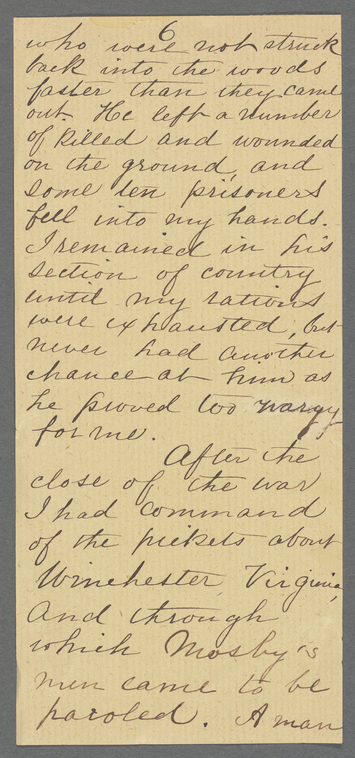 6
who were not struck
back into the woods
faster than they came
out. He left a number
of killed and wounded
on the ground, and
some ten prisoners
fell into my hands.
I remained in his
section of country
until my rations
were exhausted, but
never had another
chance at him as
he proved too
for me.
After the
close of the war
I had command
of the pickets about
Winchester, Virginia,
and through
which Mosby's
men came to be
paroled. A man